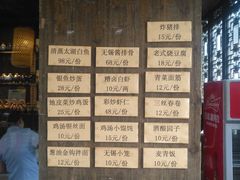 炸猪排
15元/份
清蒸太湖白鱼
98元/份
无锡酱排骨
68元/份
老式烧豆腐
18元/份
银鱼炒蛋
28元/份
糟卤白虾
10元/两
青菜面筋
12元/份
地皮菜炒鸡蛋
25元/份
彩炒虾仁
48元/份
三丝春卷
12元/份
鸡汤银丝面
10元/份
鸡汤小馄饨
15元/份
酒酿园子
10元/份
葱油金钩拌面
12元/份
无锡小笼
10元/份
麦青饭
10元/份